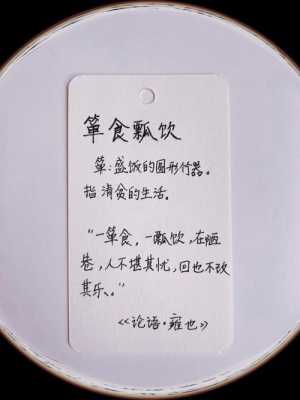 箪食瓢饮
箪：盛饭的圆形竹器。
指清贫的生活。
“一箪食，一瓢饮，在陋
巷，人不堪其忧，回也不改
其乐、。”
《论语·雍也》